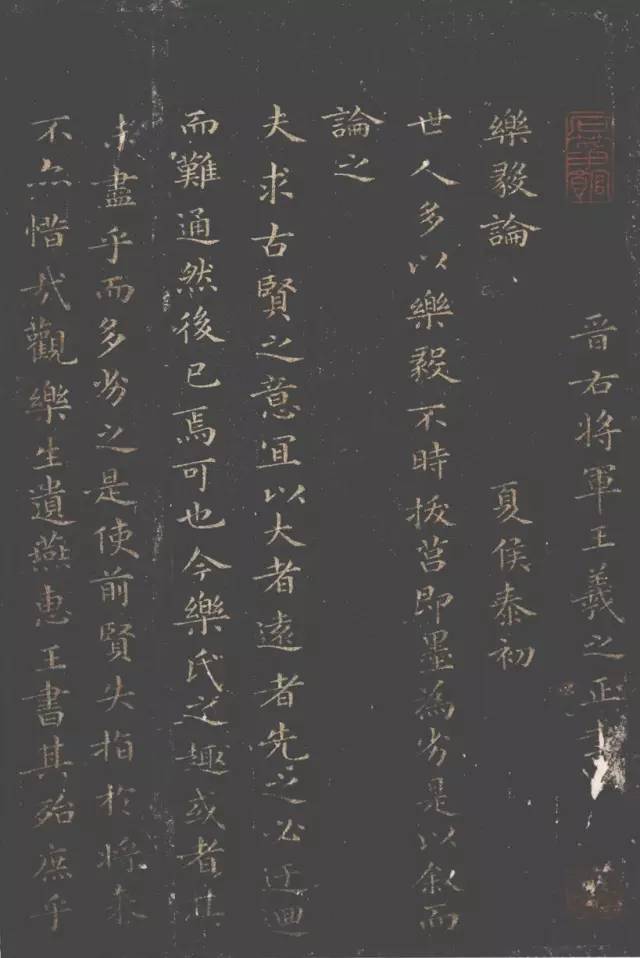 晉右将軍王羲之正書
樂毅論 夏侯泰初
世人多以樂毅不時拔莒即墨為劣是以叙而
論之
夫求古賢之意宜以大者遠者先之必迂迴
而難通然後已焉可也今樂氏之趣或者其
未盡乎而多劣之是使前賢失指於将来
不亦惜哉觀樂生遺燕惠王書其殆庶乎